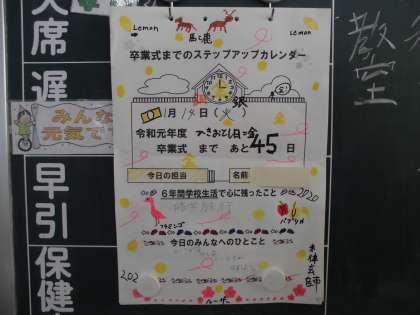 欠席
遅
早引
保健
みんな
元気で
教室
Lemon
Lemon
馬と鹿
卒業式までのステップアップカレンダー
1月14日(火)
令和元年度
卒業式 まで あと45日
今日の担当
名前
6年間学校生活で心に残ったこと
2020
修学旅行
フラミンゴ
パプリカ
今日のみんなへのひとこと
米津玄師
202
ルーザー